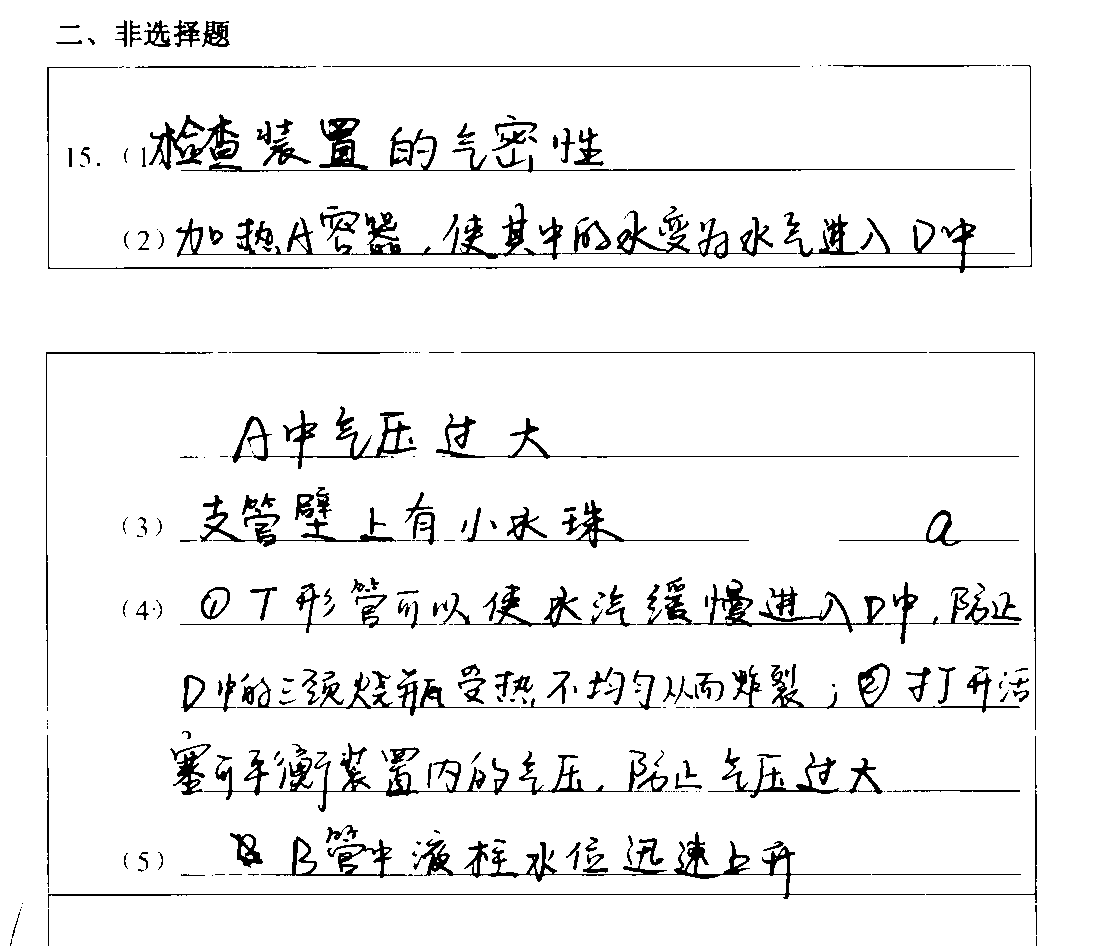 二、非选择题
15.（1）检查装置的气密性
（2）加热A容器，使其中的水变为水气进入D中
A中气压过大
（3）支管壁上有小水珠 a
（4）①T形管可以使水汽缓慢进入D中，防止
D中的三颈烧瓶受热不均匀从而炸裂；②打开活
塞可平衡装置内的气压，防止气压过大
（5）B管中液柱水位迅速上升